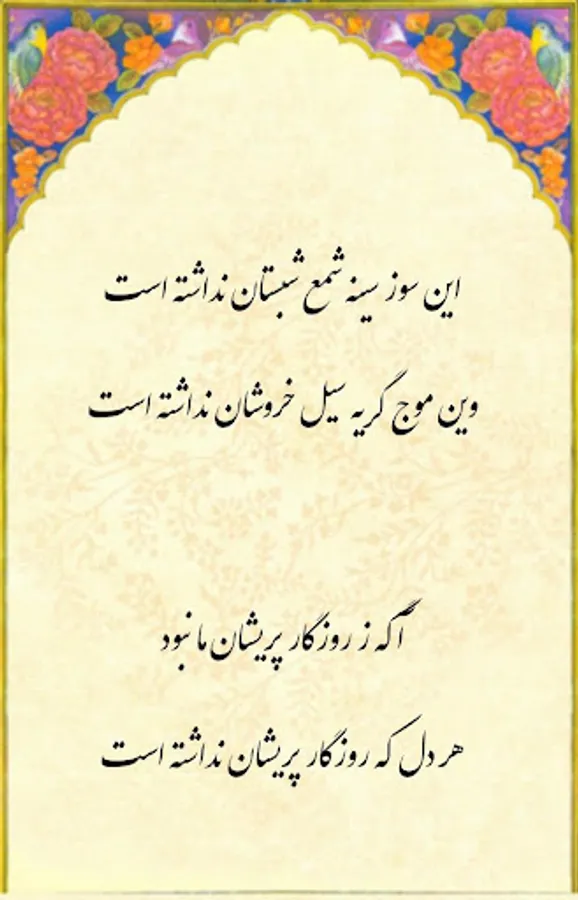 این سوز سینه شمع شبستان نداشته است
وین موج گریه سیل خروشان نداشته است
آگه ز روزگار پریشان ما نبود
هر دل که روزگار پریشان نداشته است